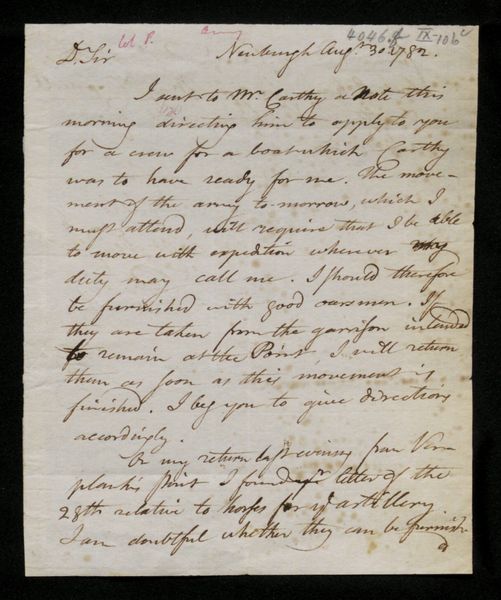 Col. P.
army
4046 IX-106c
Dr. Sir Newburgh Augt. 30 1782.
I sent to Mr. Carthy a Note this
morning directing him to apply to you
for a crew for a boat which Carthy
was to have ready for me. The move-
ment of the army to-morrow, which I
must attend, will require that I be able
to move with expedition wherever my
duty may call me. I should therefore
be furnished with good oarsmen. If
they are taken from the garrison intended
to remain at the Point, I will return
them as soon as this movement is
finished. I beg you to give directions
accordingly.
On my return last evening from Ver-
plank's Point I found yr. letter of the
28th relative to horses for yr. artillery.
I am doubtful whether they can be furnish-
ed